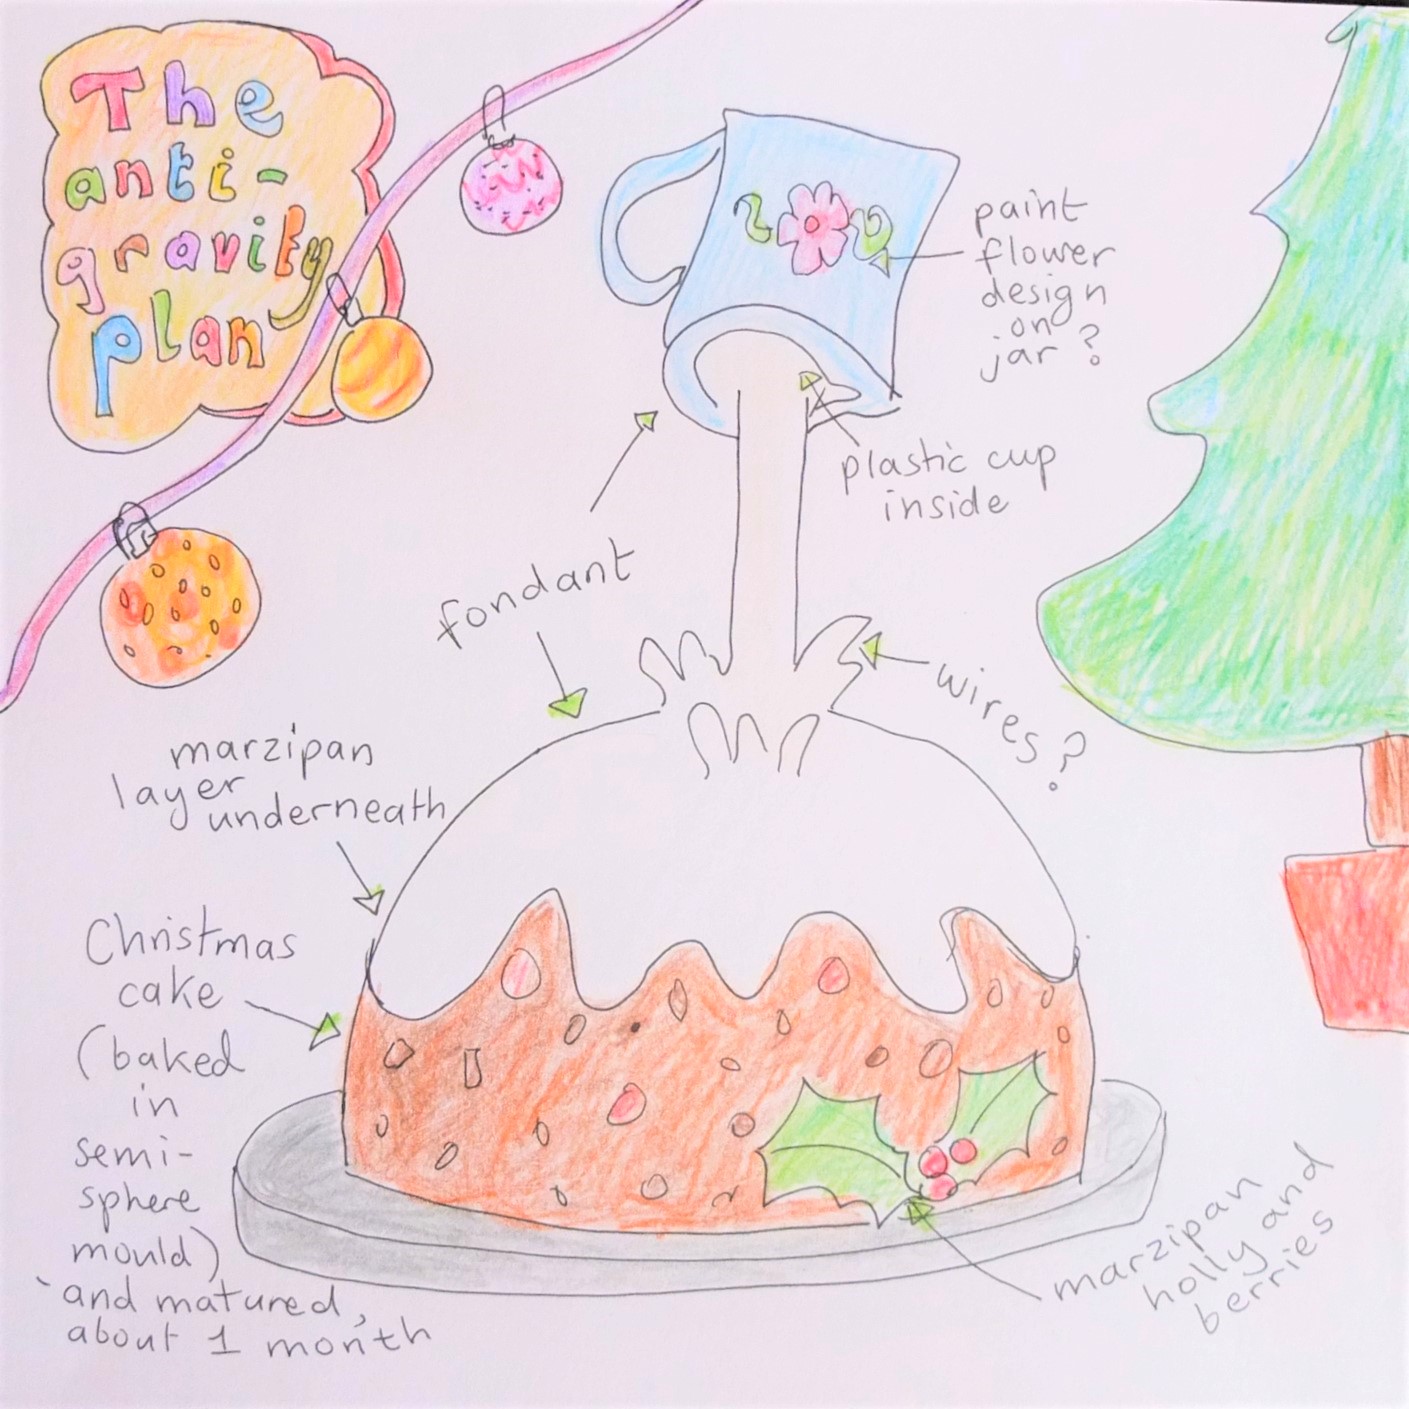 The
anti-
gravity
plan
paint
flower
design
on
jar?
plastic cup
inside
fondant
wires?
marzipan
layer
underneath
Christmas
cake
(baked
in
semi-
sphere
mould)
and matured,
about 1 month
marzipan
holly and
berries